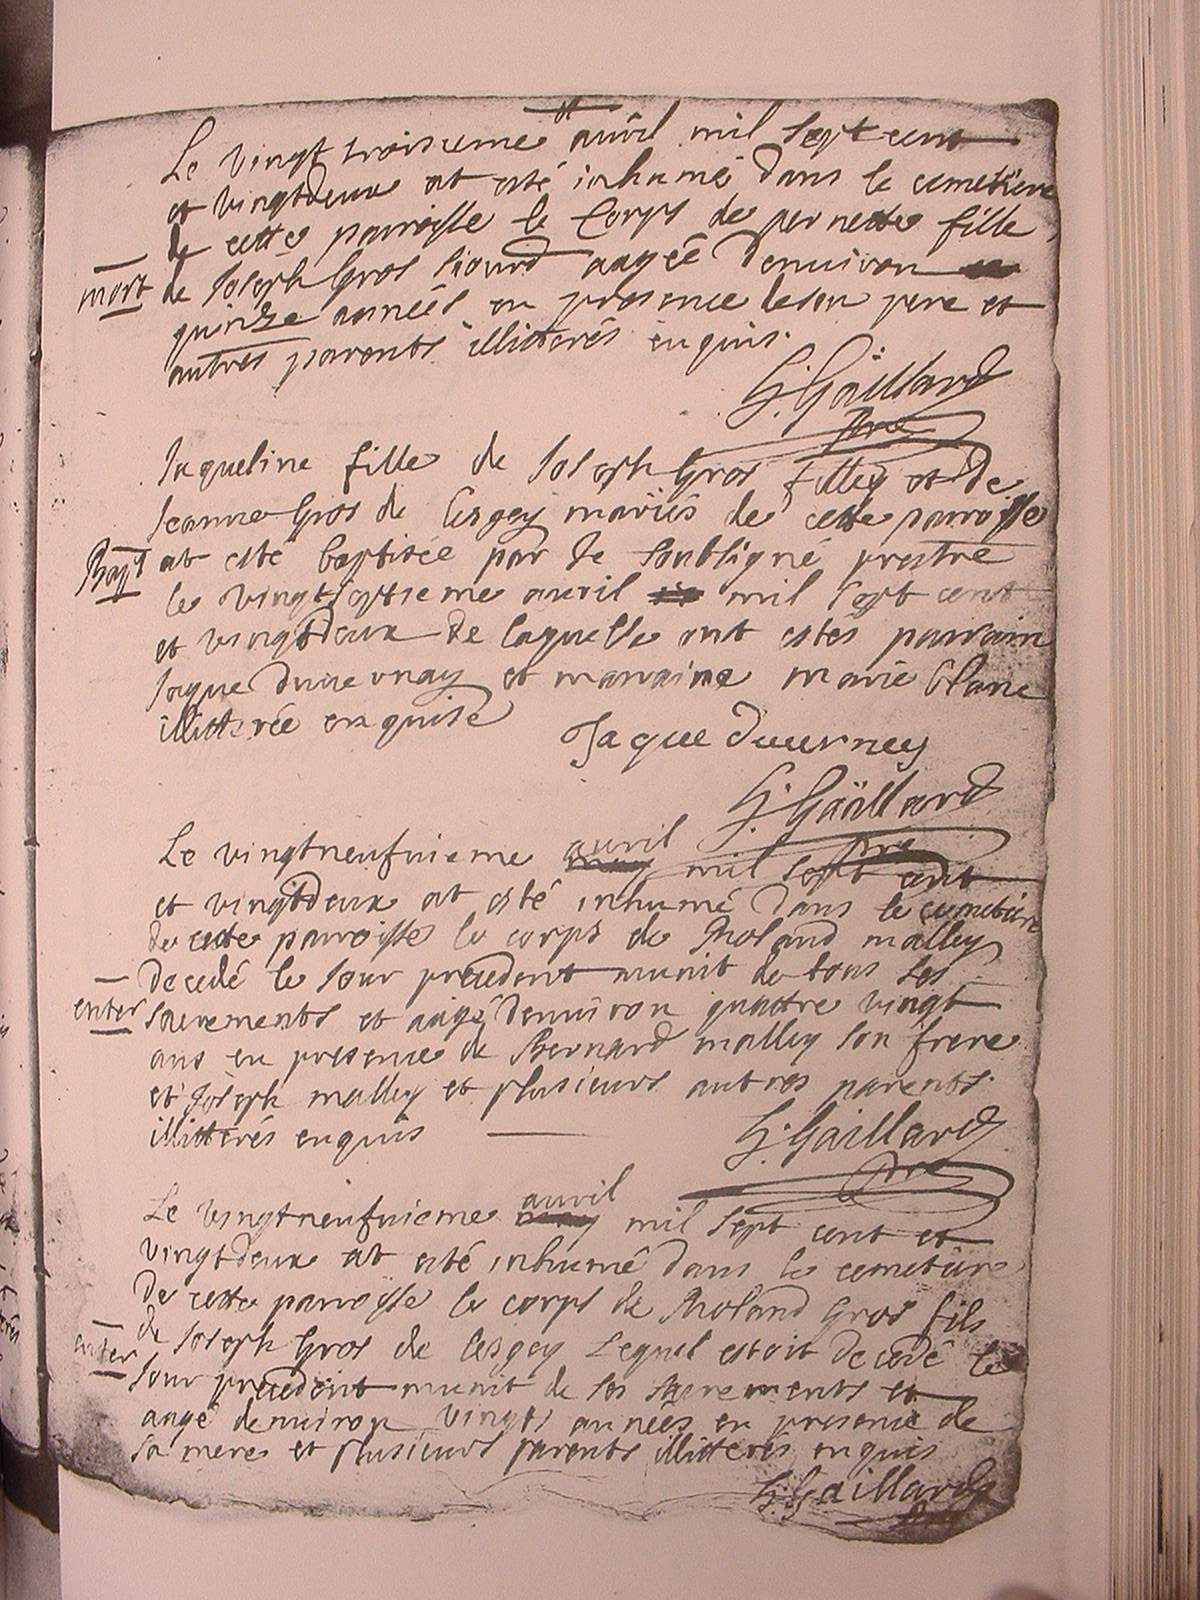 Le vingt troisieme avril mil sept cent
et vingtdeux at esté inhumé dans le cemetiere
de cette parroisse le Corps de pernette fille
mort de Joseph Gros aagée denuiron
quinze années en presence de son pere et
autres parents illitterés enquis.
G: Gaillard
pre
Jaqueline fille de Joseph Gros filley et de
Jeanne Gros de Cergey mariés de cette parroisse
Bapt at esté baptisée par le soubsigné prestre
le vingtseptieme auril mil sept cent
et vingtdeux de laquelle ont estés parrain
Jaque Duuernay et marraine marie blanc
illitterée enquise
Jaque duuerney
G: Gaillard
pre
Le vingtneufuieme auril mil sept cent
et vingtdeux at esté inhumé dans le cemetiere
de cette parroisse le corps de Roland malley
decedé le Jour precedent munit de tous ses
enter sacrements et aagé denuiron quattre vingt
ans en presence de Bernard malley son frere
et Joseph malley et plusieurs autres parents.
illitterés enquis
G: Gaillard
pre
Le vingtneufuieme auril mil sept cent et
vingtdeux at esté inhumé dans le cemetiere
de cette parroisse le corps de Roland Gros fils
enter de Joseph Gros de Cergey Lequel estoit decedé le
Jour precedent munit de ses sacrements et
aagé denuiron vingt années en presence de
sa mere et plusieurs parents illitterés enquis
G: Gaillard